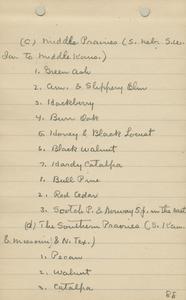 (c) Middle Prairies (S. Neb. S.W.
Ia. to Middle Kans.)
1. Green Ash
2. Am. & Slippery Elm
3. Hackberry
4. Burr Oak
5. Honey & Black Locust
6. Black Walnut
7. Hardy Catalpa
1. Bull Pine
2. Red Cedar
3. Scotch P. & Norway Sp. in the east
(d) The Southern Prairies (S. Kan.
& Missouri & N. Tex.)
1. Pecan
2. Walnut
3. Catalpa